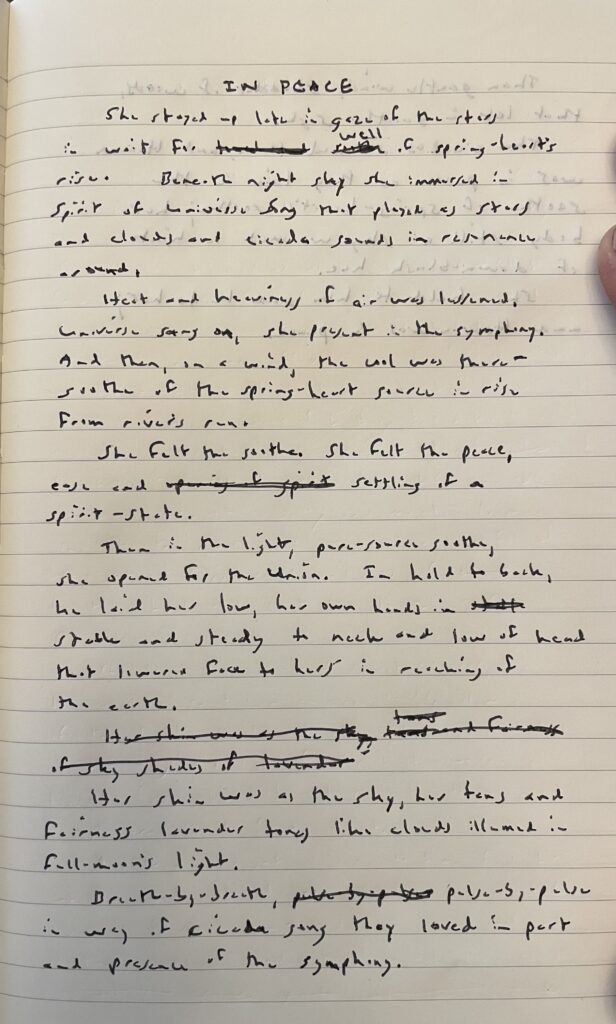 IN PEACE
She stayed up late in gaze of the stars
well
in wait for of spring-heart's
rise. Beneath night sky she immersed in
spirit of universe song that played as stars
and clouds and cicada sounds in resonance
around.
Heat and heaviness of air was lessened.
Universe sang on, she present in the symphony.
And then, on a wind, the cool was there –
soothe of the spring-heart source in rise
from river's run.
She felt the soothe. She felt the peace,
ease and opening of spirit settling of a
spirit-state.
Then in the light, pure-source soothe,
she opened for the union. In hold to back,
he laid her low, her own hands in
stable and steady to neck and low of head
that lowered face to hers in reaching of
the earth.
tans
Her skin was as the sky, tans and fairness
of sky shades of lavender
Her skin was as the sky, her tans and
fairness lavender tones like clouds illumed in
full-moon's light.
Breath-by-breath, pulse-by-pulse pulse-by-pulse
in way of cicada song they loved in part
and presence of the symphony.